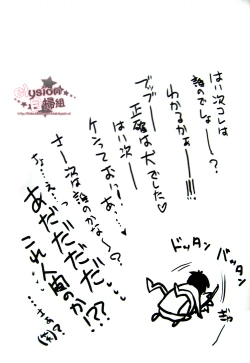 はい次コレは
誰のでしょー――?
わかるかぁー!!!
ブッブー
正確は犬でした♡
はい次―
ケンっておい!!あ…
さー次は誰のかな〜?
ちょ…え…?
あだだだだだ
これ人間のか!??
ドッタン
バッタン
ぎゃ